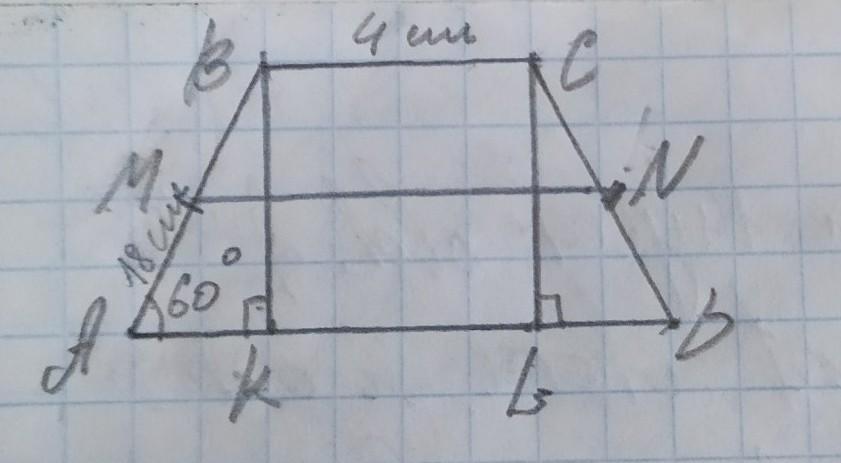 4 см
B
C
M
N
18 см
60°
A
K
L
D